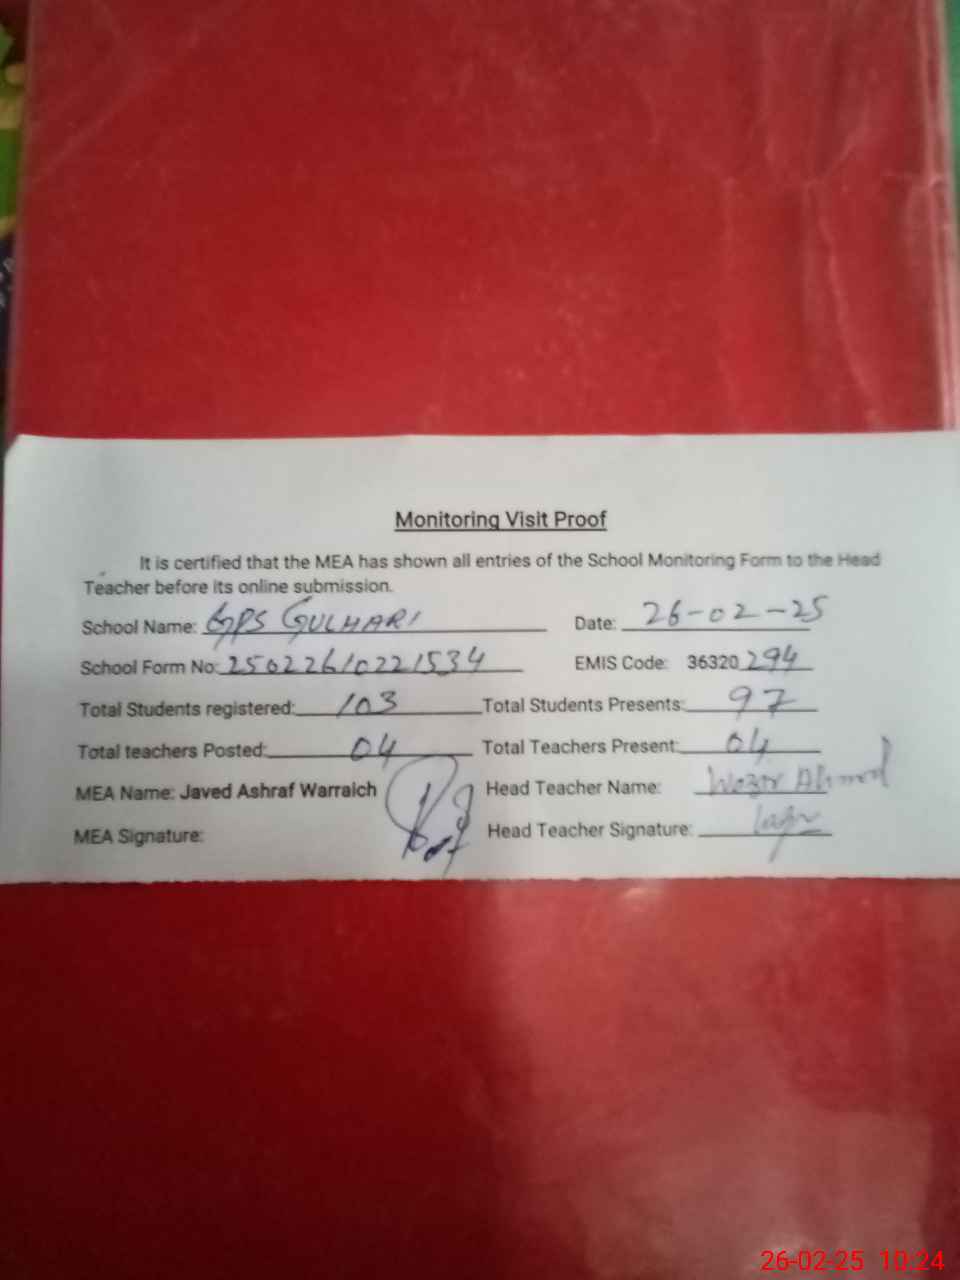 Monitoring Visit Proof
It is certified that the MEA has shown all entries of the School Monitoring Form to the Head
Teacher before its online submission.
School Name: GPS GULHARI Date: 26-02-25
School Form No: 25022610221534 EMIS Code: 36320 294
Total Students registered: 103 Total Students Presents: 97
Total teachers Posted: 04 Total Teachers Present: 04
MEA Name: Javed Ashraf Warraich Head Teacher Name: Ahmed
MEA Signature: Head Teacher Signature:
26-02-25 10:24